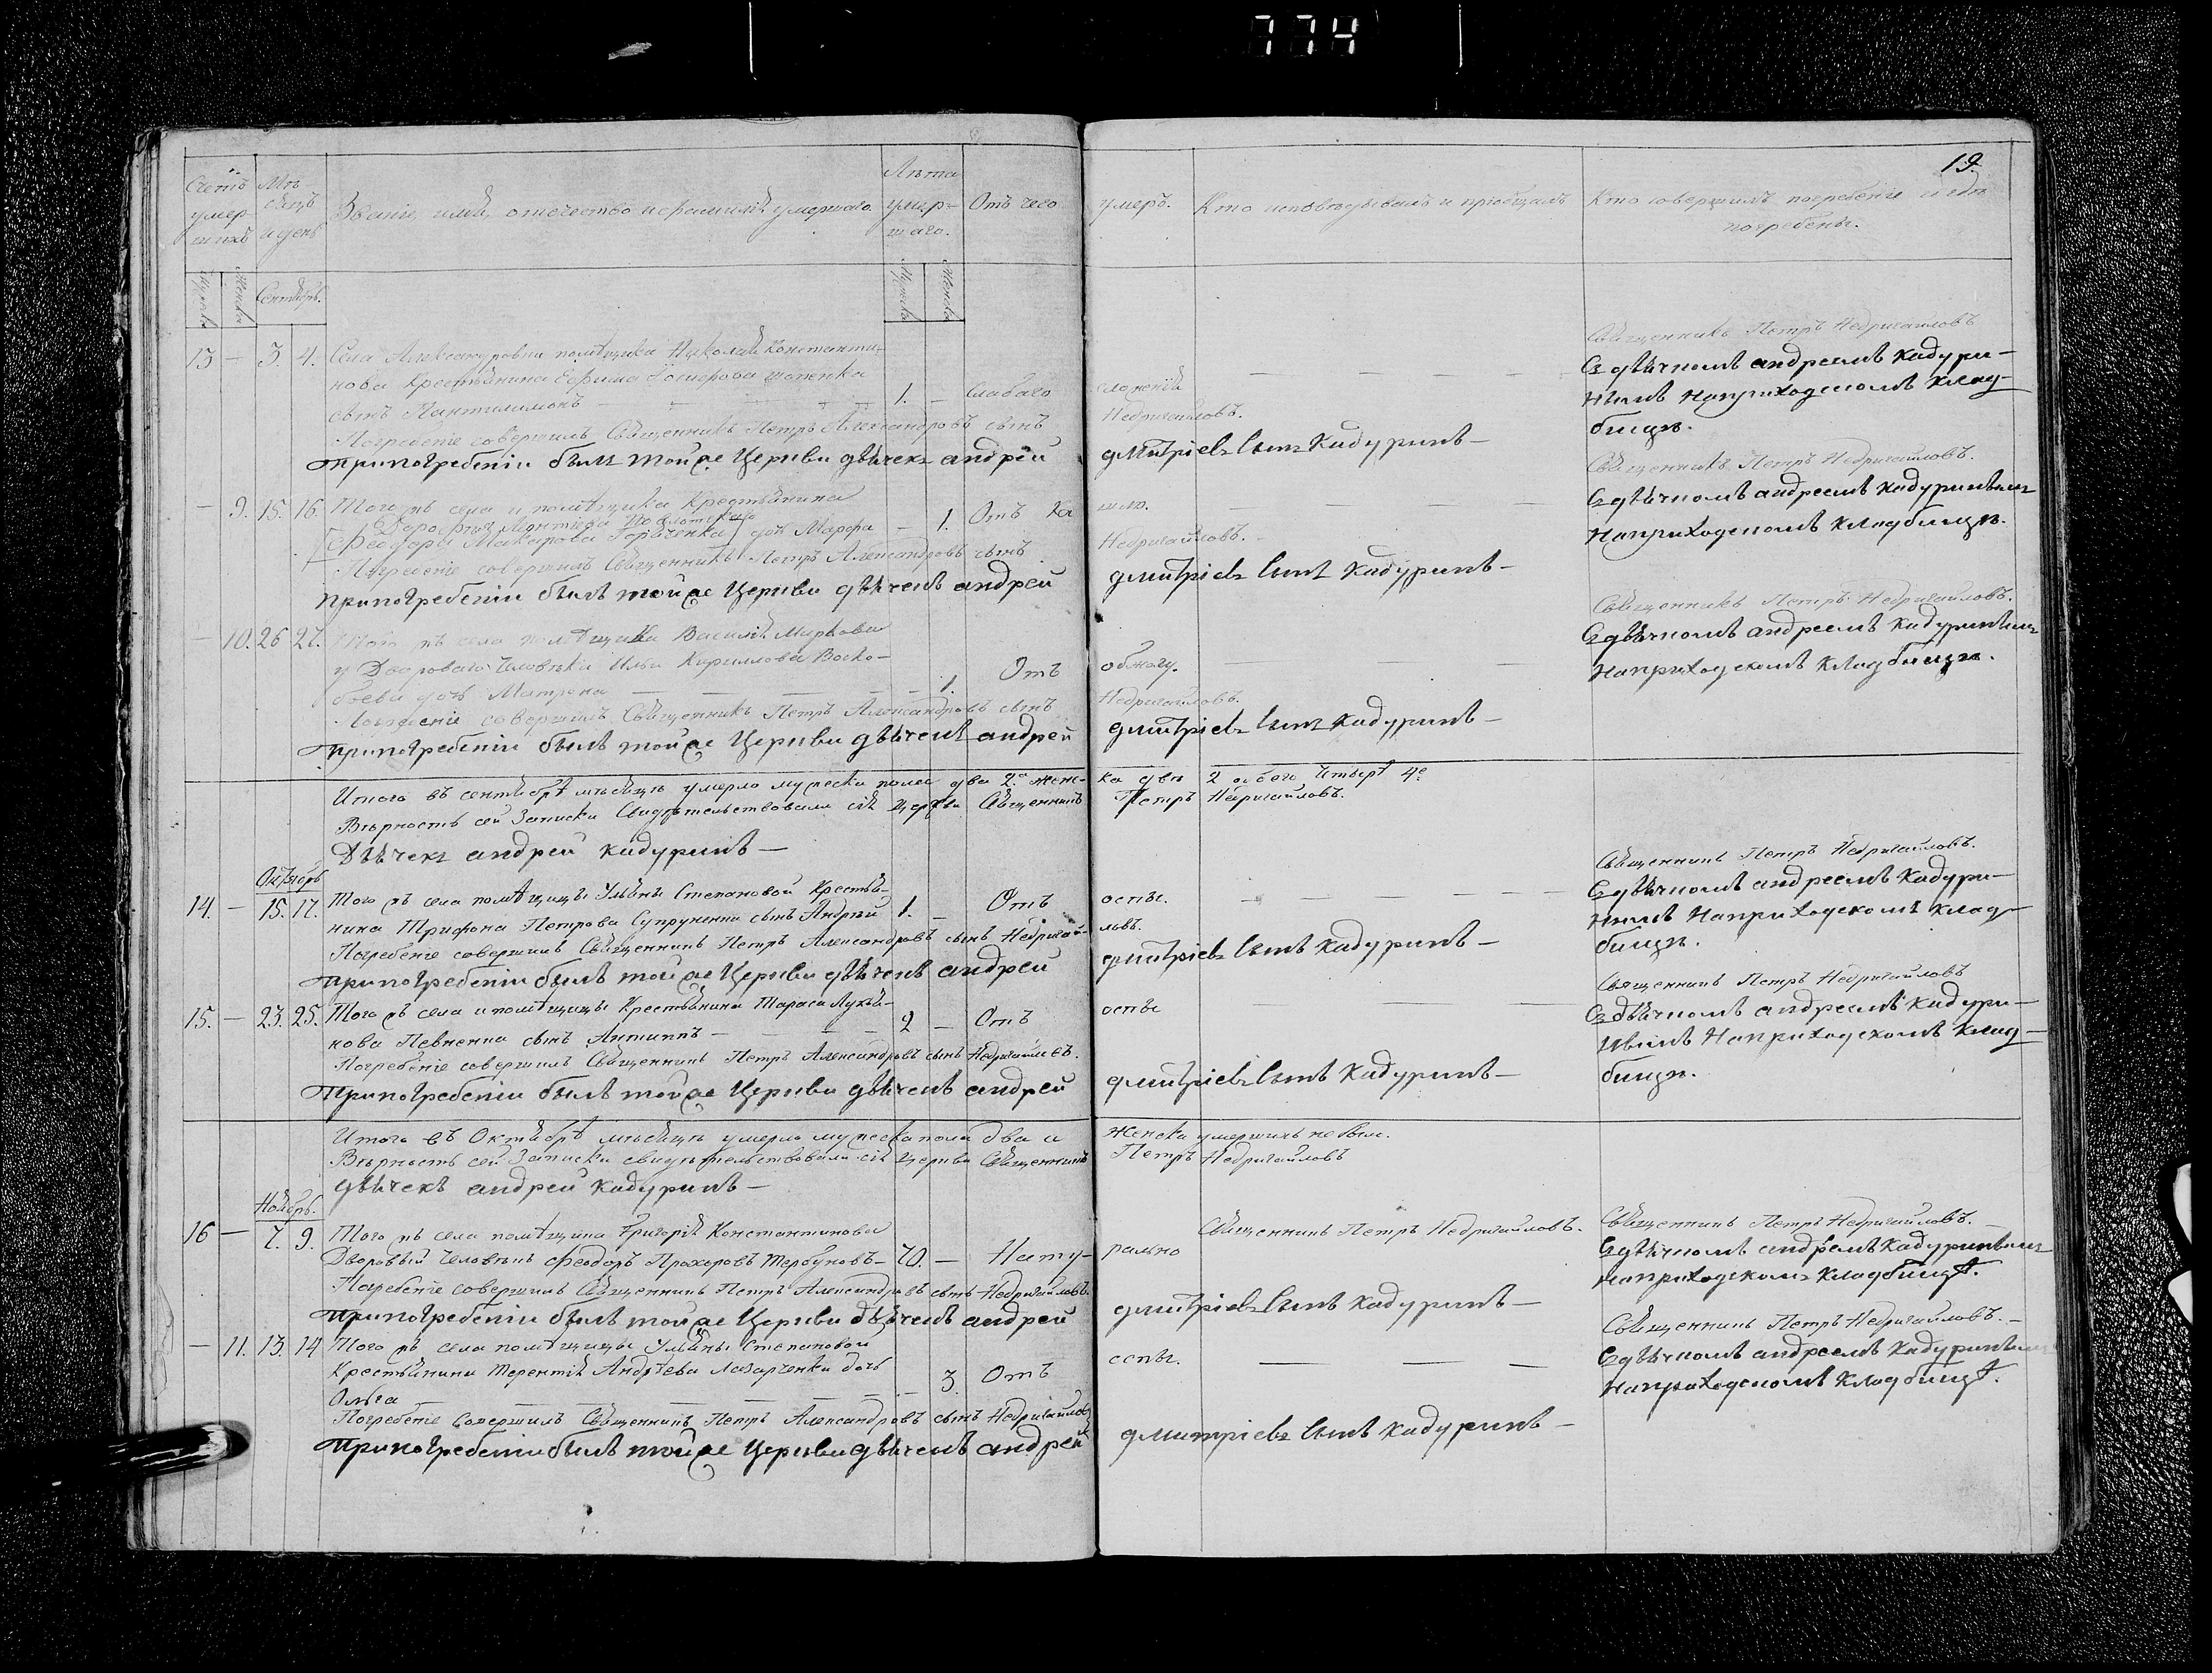 774
19.
Счетъ умер- шихъ
Мѣ сяцъ и день
Званіе, имя, отечество и фамилія умершаго
Лѣта умер- шаго.
Отъ чего умеръ.
Кто исповѣдывалъ и пріобщалъ
Кто совершилъ погребеніе и гдѣ погребены.
Мужска Женска
Сентябрь.
Мужска Женска
13 — 3. 4. Села Александровки помѣщика Николая Константи-
нова Крестьянина Ефима
сынъ Пантилимонъ — 1. — Слабаго сложенія
Погребеніе совершилъ Священникъ Петръ Александровъ сынъ Недригайловъ.
При погребеніи былъ той же Церкви дьячекъ андрей дмитріевъ сынъ Кадуринъ —
Священникъ Петръ Недригайловъ
Съ дьячкомъ андреемъ Кадури-
нымъ На приходскомъ Клад-
бищѣ.
— 9. 15. 16. Того жъ села и помѣщика Крестьянина
Феодора Макарова дочь Марфа — 1. Отъ Ка шля.
Погребеніе совершилъ Священникъ Петръ Александровъ сынъ Недригайловъ.
При погребеніи былъ той же Церкви дьячекъ андрей дмитріевъ сынъ Кадуринъ —
Священникъ Петръ Недригайловъ.
Съ дьячкомъ андреемъ Кадуринымъ
На приходскомъ Кладбищѣ.
— 10. 26 27. Того жъ села помѣщика Василія Маркова
у Двороваго Человѣка Ильи Кирилова Воско-
боева дочь Матрона — 1. Отъ обжогу.
Погребеніе совершилъ Священникъ Петръ Александровъ сынъ Недригайловъ.
При погребеніи былъ той же Церкви дьячекъ андрей дмитріевъ сынъ Кадуринъ —
Священникъ Петръ Недригайловъ.
Съ дьячкомъ андреемъ Кадуринымъ
На приходскомъ Кладбищѣ.
Итого въ сентябрѣ мѣсяцѣ умерло мужеска пола два 2. женс- ка двѣ 2 обоего Четыре 4е
Вѣрность сей Записки Свидѣтельствовали сія Церкви Священникъ Петръ Недригайловъ.
Дьячекъ андрей Кадуринъ —
Октябрь
14. — 15. 17. Того жъ села помѣщицы Ульяны Степановой Крестья-
нина Трифона Петрова Супруненка сынъ Андрей 1. — Отъ оспы.
Погребеніе совершилъ Священникъ Петръ Александровъ сынъ Недригай- ловъ.
При погребеніи былъ той же Церкви дьячекъ андрей дмитріевъ сынъ Кадуринъ —
Священникъ Петръ Недригайловъ.
Съ дьячкомъ андреемъ Кадури-
нымъ На приходскомъ Клад-
бищѣ.
15. — 23. 25. Того жъ села и помѣщицы Крестьянина Тараса Лукья-
нова Певненка сынъ Антиппъ — 2 — Отъ оспы
Погребеніе совершилъ Священникъ Петръ Александровъ сынъ Недригайловъ.
При погребеніи былъ той же Церкви дьячекъ андрей дмитріевъ сынъ Кадуринъ —
Священникъ Петръ Недригайловъ
Съ дьячкомъ андреемъ Кадури-
нымъ На приходскомъ Клад-
бищѣ.
Итого въ Октябрѣ мѣсяцѣ умерло мужеска пола два а женска умершихъ не было.
Вѣрность сей Записки свидѣтельствовали сія Церкви Священникъ Петръ Недригайловъ
дьячекъ андрей Кадуринъ —
Ноябрь.
16 — 7. 9. Того жъ села помѣщика Григорія Константинова
Дворовый Человѣкъ Феодоръ Прохоровъ Тербуновъ — 70. — Нату- рально
Священникъ Петръ Недригайловъ.
Погребеніе совершилъ Священникъ Петръ Александровъ сынъ Недригайловъ.
При погребеніи былъ той же Церкви дьячекъ андрей дмитріевъ сынъ Кадуринъ —
Священникъ Петръ Недригайловъ.
Съ дьячкомъ андреемъ Кадуринымъ
На приходскомъ Кладбищѣ.
— 11. 13. 14 Того жъ села помѣщицы Ульяны Степановой
Крестьянина Терентія Андрѣева Лазарченка дочь
Ольга — 3. Отъ оспы.
Погребеніе Совершилъ Священникъ Петръ Александровъ сынъ Недригайловъ
При погребеніи былъ той же Церкви дьячекъ андрей дмитріевъ сынъ Кадуринъ —
Священникъ Петръ Недригайловъ. —
Съ дьячкомъ андреемъ Кадуринымъ
На приходскомъ Кладбищѣ.